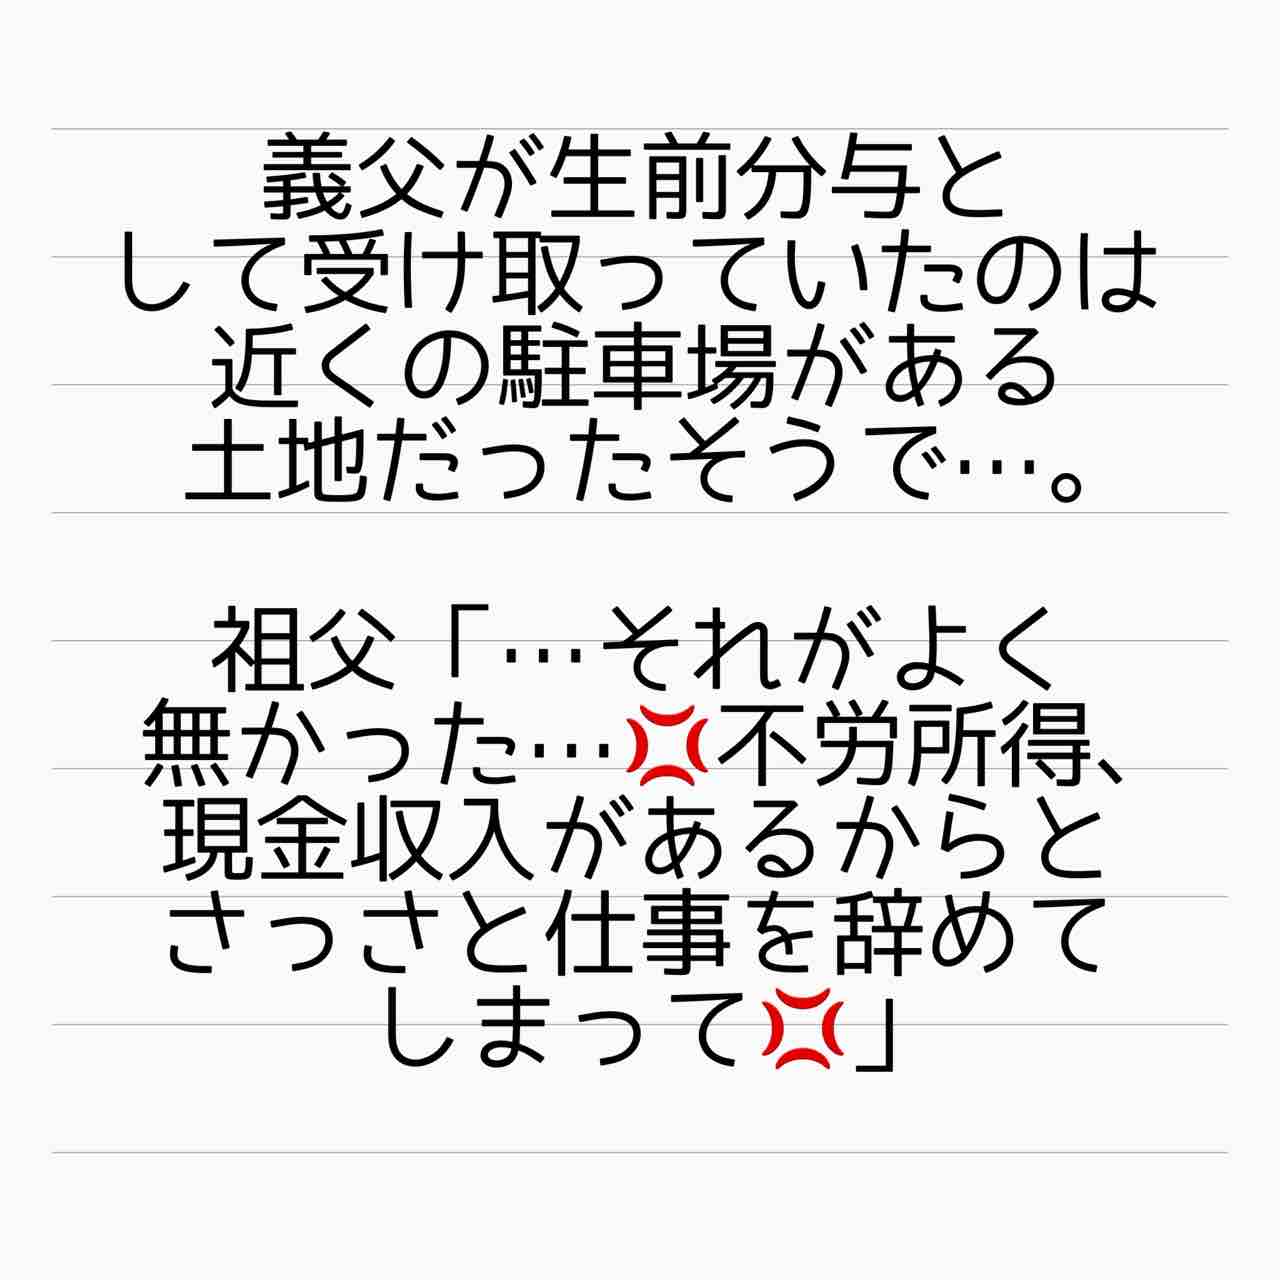 義父が生前分与と
して受け取っていたのは
近くの駐車場がある
土地だったそうで…。
祖父「…それがよく
無かった…💢不労所得、
現金収入があるからと
さっさと仕事を辞めて
しまって💢」